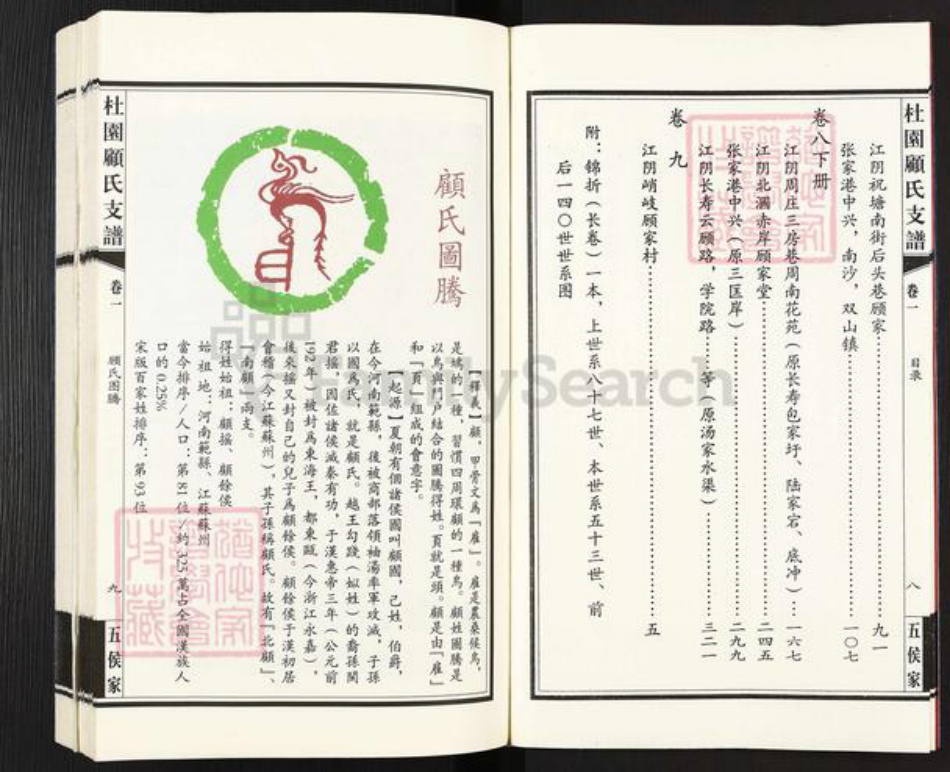 杜園顧氏支譜
卷一
目录
八
五侯家
江阴祝塘南街后头巷顾家……九一
张家港中兴，南沙，双山镇……一〇七
卷八下册
江阴周庄三房巷周南花苑（原长寿包家圩、陆家宕、底冲）…一六七
江阴北漍赤岸顾家堂……二四五
张家港中兴（原三匡岸）……二九九
江阴长寿云顾路，学院路……等（原汤家水渠）……三二一
卷九
江阴峭岐顾家村……五
附：錦折（长卷）一本，上世系八十七世、本世系五十三世、前
后一四〇世世系图
顧氏圖騰
【釋義】顧，甲骨文爲「雇」。雇是農桑候鳥，
是鳸的一種，習慣四周環顧的一種鳥。顧姓圖騰是
以鳥與門戶結合的圖騰得姓。頁就是頭。顧是由「雇」
和「頁」組成的會意字。
【起源】夏朝有個諸侯國叫顧國，己姓，伯爵，
在今河南範縣，後被商部落領袖湯率軍攻滅，子孫
以國爲氏，就是顧氏。越王勾踐（姒姓）的裔孫閩
君摇，因佐諸侯滅秦有功，于漢惠帝三年（公元前
192年）被封爲東海王，都東甌（今浙江永嘉），
後來摇又封自己的兒子爲顧餘侯。顧餘侯于漢初居
會稽（今江蘇蘇州），其子孫稱顧氏。故有「北顧」、
「南顧」兩支。
得姓始祖：顧摇、顧餘侯
始祖地：河南範縣、江蘇蘇州
當今排序／人口：第81位／約325萬占全國漢族人
口的0.25%
宋版百家姓排序：第93位
杜園顧氏支譜
卷一
顾氏图騰
九
五侯家
FamilySearch